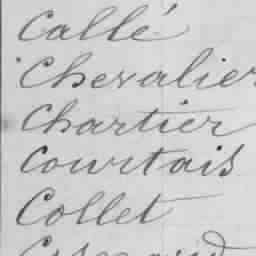 Callé
Chevalier
Chartier
Courtois
Collet